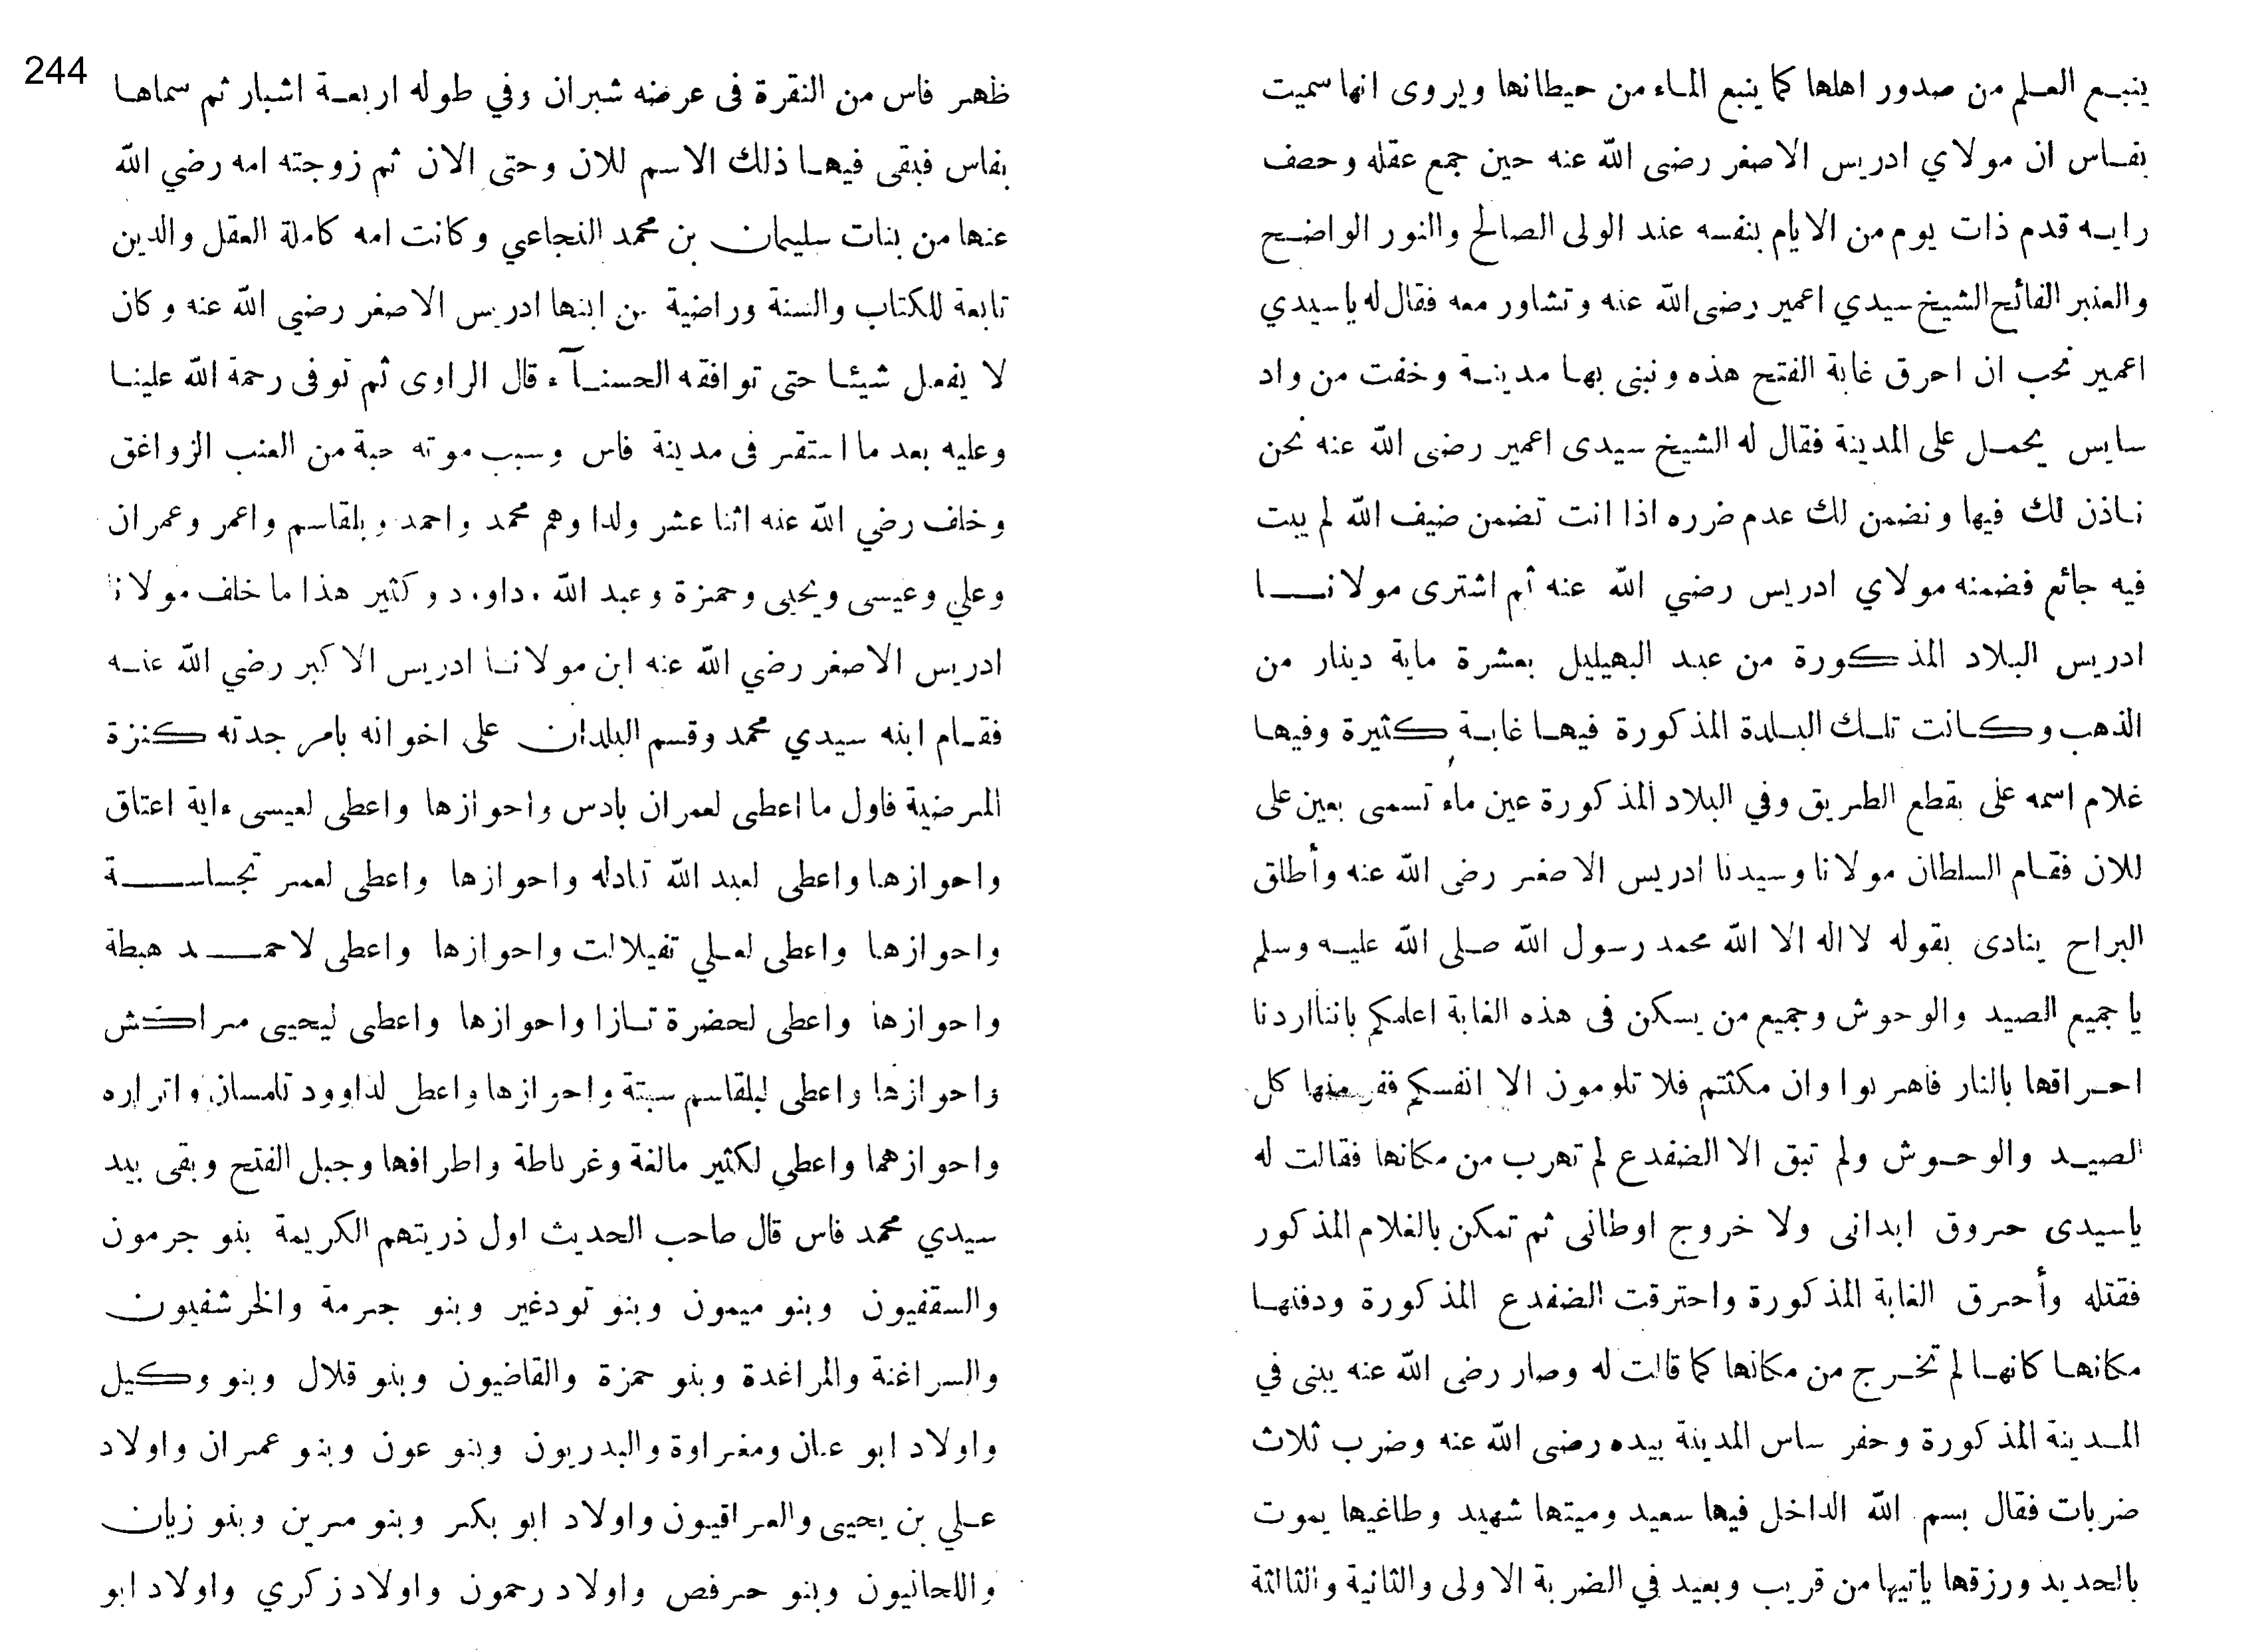 ينبع العلم من صدور اهلها كما ينبع الماء من حيطانها ويروى انها سميت
بفاس ان مولاي ادريس الاصغر رضى الله عنه حين جمع عقله وحصف
رايه قدم ذات يوم من الايام بنفسه عند الولى الصالح والنور الواضح
والعنبر الفائح الشيخ سيدي اعمير رضى الله عنه وتشاور معه فقال له ياسيدي
اعمير نحب ان احرق غابة الفتح هذه ونبنى بها مدينة وخفت من واد
سايس يحمل على المدينة فقال له الشيخ سيدى اعمير رضى الله عنه نحن
ناذن لك فيها ونضمن لك عدم ضرره اذا انت تضمن ضيف الله لم يبت
فيه جائع فضمنه مولاي ادريس رضي الله عنه ثم اشترى مولانا
ادريس البلاد المذكورة من عبد البهيليل بعشرة ماية دينار من
الذهب وكانت تلك البلدة المذكورة فيها غابة كثيرة وفيها
غلام اسمه على بقطع الطريق وفي البلاد المذكورة عين ماء تسمى بعين على
للان فقام السلطان مولانا وسيدنا ادريس الاصغر رضى الله عنه وأطلق
البراح ينادى بقوله لا اله الا الله محمد رسول الله صلى الله عليه وسلم
يا جميع الصيد والوحوش وجميع من يسكن فى هذه الغابة اعلمكم باننا اردنا
احراقها بالنار فاهربوا وان مكثتم فلا تلومون الا انفسكم ففر منها كل
الصيد والوحوش ولم تبق الا الضفدع لم تهرب من مكانها فقالت له
ياسيدى حروق ابدانى ولا خروج اوطانى ثم تمكن بالغلام المذكور
فقتله وأحرق الغابة المذكورة واحترقت الضفدع المذكورة ودفنها
مكانها كانها لم تخرج من مكانها كما قالت له وصار رضى الله عنه يبنى في
المدينة المذكورة وحفر ساس المدينة بيده رضى الله عنه وضرب ثلاث
ضربات فقال بسم الله الداخل فيها سعيد وميتها شهيد وطاغيها يموت
بالحديد ورزقها ياتيها من قريب وبعيد في الضربة الاولى والثانية والثالثة
244
ظهر فاس من النقرة فى عرضه شبران وفي طوله اربعة اشبار ثم سماها
بفاس فبقى فيها ذلك الاسم للان وحتى الان ثم زوجته امه رضي الله
عنها من بنات سليمان بن محمد النجاعي وكانت امه كاملة العقل والدين
تابعة للكتاب والسنة وراضية من ابنها ادريس الاصغر رضي الله عنه وكان
لا يفعل شيئا حتى توافقه الحسنآء قال الراوى ثم توفى رحمة الله علينا
وعليه بعد ما استقر فى مدينة فاس وسبب موته حبة من العنب الزواغق
وخلف رضي الله عنه اثنا عشر ولدا وهم محمد واحمد وبلقاسم واعمر وعمران
وعلي وعيسى ويحيى وحمزة وعبد الله وداود وكثير هذا ما خلف مولانا
ادريس الاصغر رضي الله عنه ابن مولانا ادريس الاكبر رضي الله عنه
فقام ابنه سيدي محمد وقسم البلدان على اخوانه بامر جدته كنزة
المرضية فاول ما اعطى لعمران بادس واحوازها واعطى لعيسى ءاية اعتاق
واحوازها واعطى لعبد الله تادله واحوازها واعطى لعمر تجساسة
واحوازها واعطى لعلي تفيلالت واحوازها واعطى لاحمد هبطة
واحوازها واعطى لحضرة تازا واحوازها واعطى ليحيى مراكش
واحوازها واعطى لبلقاسم سبتة واحوازها واعطى لداوود تلمسان واتراره
واحوازهما واعطي لكثير مالغة وغرناطة واطرافها وجبل الفتح وبقى بيد
سيدي محمد فاس قال صاحب الحديث اول ذريتهم الكريمة بنو جرمون
والسقفيون وبنو ميمون وبنو تودغير وبنو جرمة والخرشفيون
والسراغنة والمراغدة وبنو حمزة والقاضيون وبنو قلال وبنو وكيل
واولاد ابو عنان ومغراوة والبدريون وبنو عون وبنو عمران واولاد
علي بن يحيى والعراقيون واولاد ابو بكر وبنو مرين وبنو زيان
واللحانيون وبنو حرفص واولاد رحمون واولاد زكري واولاد ابو